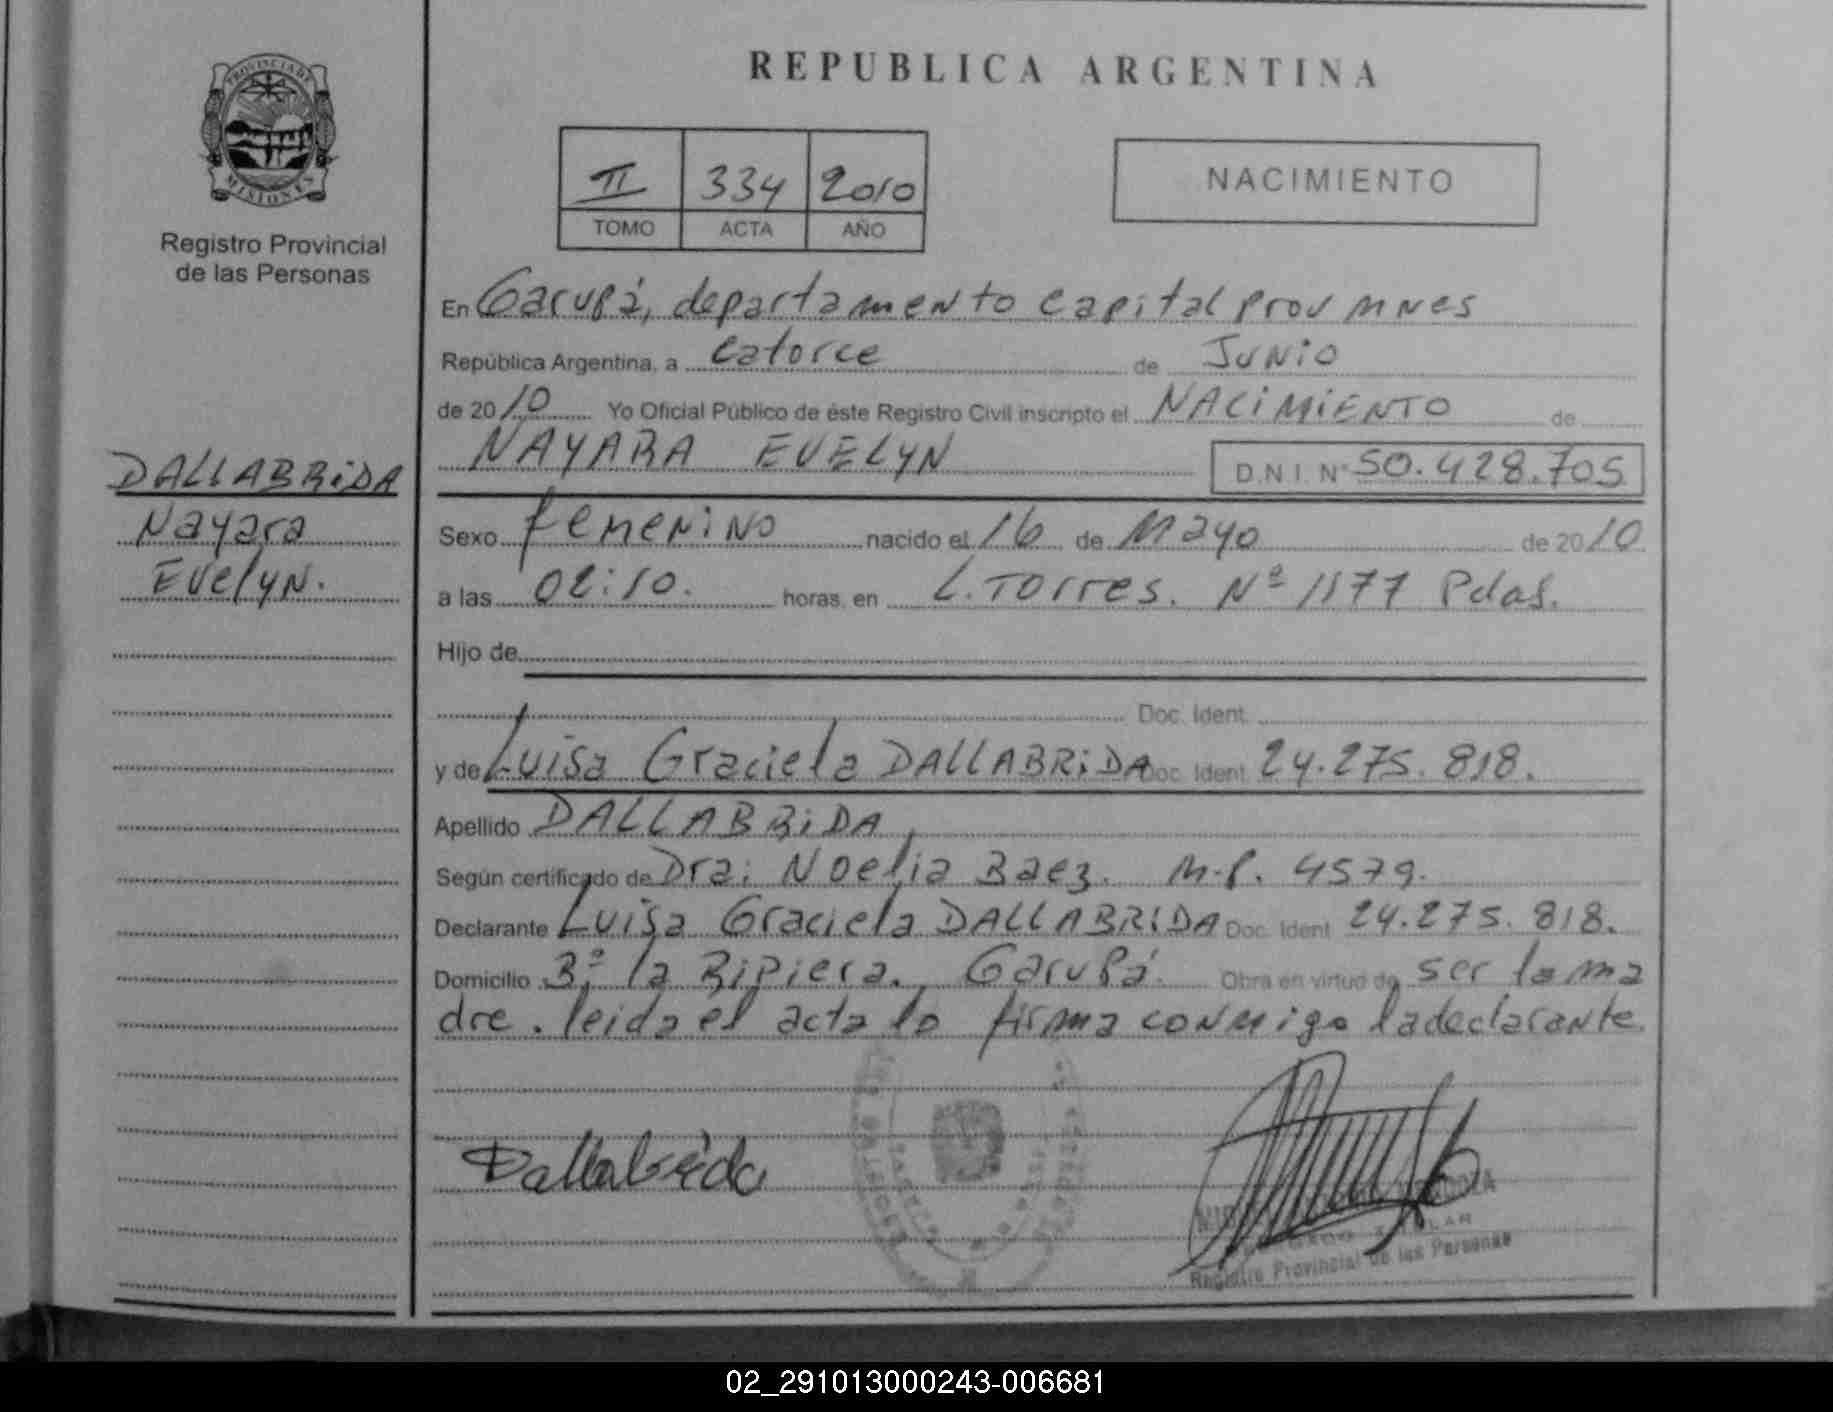 PROVINCIA DE
MISIONES
Registro Provincial
de las Personas
DALLABRiDA
Nayara
Evelyn.
REPUBLICA ARGENTINA
II 334 2010
TOMO ACTA AÑO
NACIMIENTO
En Garupá, departamento Capital Prov mnes
República Argentina, a Catorce de Junio
de 2010 Yo Oficial Público de éste Registro Civil inscripto el NACiMiENTO de
NAYARA EVELYN D.N.I. Nº 50.428.705
Sexo femeniNo nacido el 16 de Mayo de 2010
a las 02:10. horas, en L. Torres. Nº 1177 Pdas.
Hijo de
Doc. Ident.
y de Luisa Graciela DALLABRiDA Doc. Ident. 24.275.818.
Apellido DALLABRiDA
Según certificado de Dra: Noelia Baez. M.P. 4579.
Declarante Luisa Graciela DALLABRiDA Doc. Ident. 24.275.818.
Domicilio Bº la Ripiera. Garupá. Obra en virtud de ser la ma
dre. leida el acta la firma conmigo la declarante.
Dallabrida
TITULAR
Registro Provincial de las Personas
02_291013000243-006681